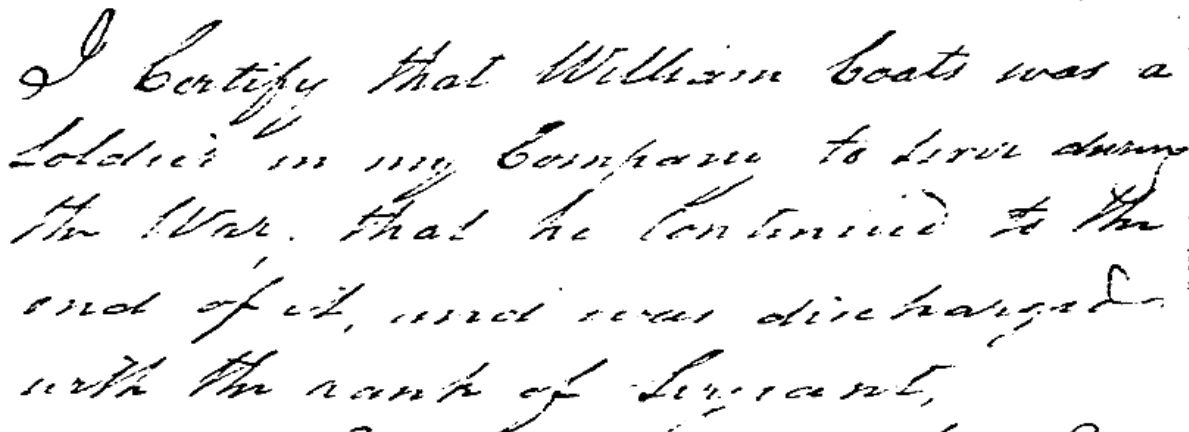 I Certify that William Coats was a
Soldier in my Company to serve during
the War, that he Continued to the
end of it, and was discharged
with the rank of Sergeant,